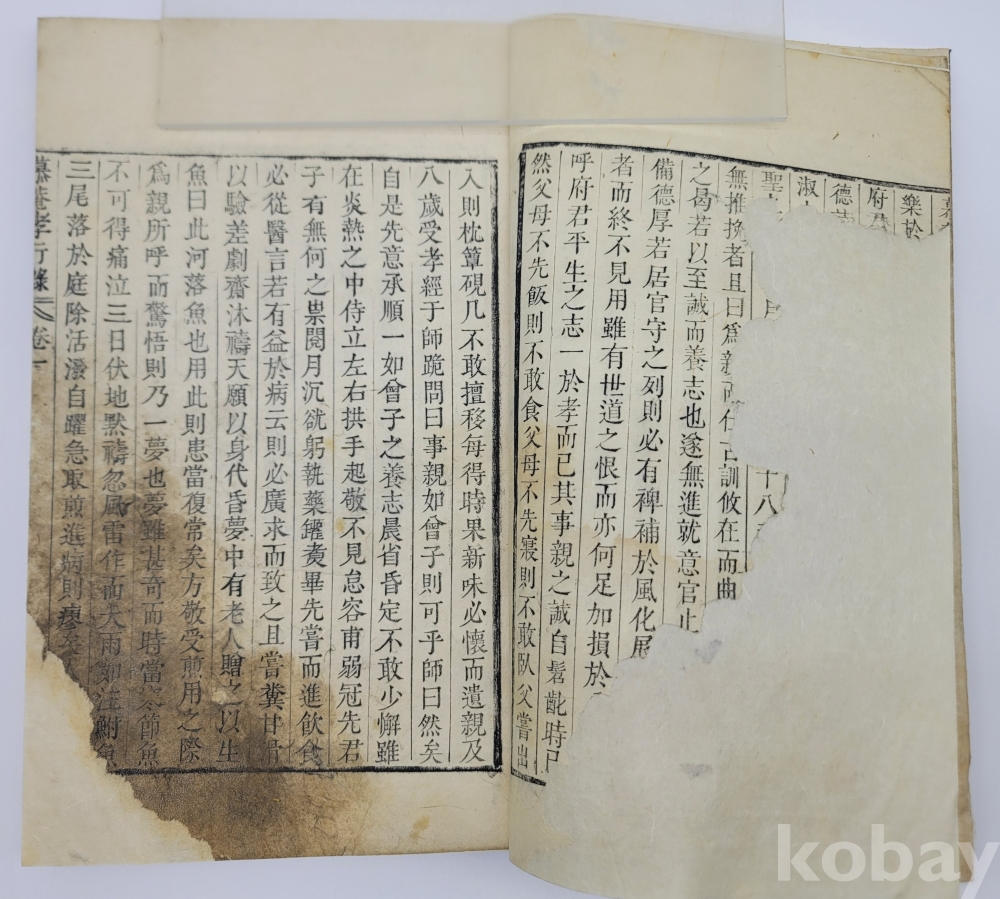 樂於
府君
德
淑
聖
十八
無推挽者且曰爲親而仕古訓攸在而曲
之曷若以至誠而養志也遂無進就意官止
備德厚若居官守之列則必有裨補於風化展
者而終不見用雖有世道之恨而亦何足加損於
呼府君平生之志一於孝而已其事親之誠自髫齔時已
然父母不先飯則不敢食父母不先寢則不敢臥父嘗出
入則枕簟硯几不敢擅移每得時果新味必懷而遺親及
八歲受孝經于師跪問曰事親如曾子則可乎師曰然矣
自是先意承順一如曾子之養志晨省昏定不敢少懈雖
在炎熱之中侍立左右拱手起敬不見怠容甫弱冠先君
子有無何之祟閱月沉欲躬執藥鑵煑畢先嘗而進飲食
必從醫言若有益於病云則必廣求而致之且嘗糞甘
以驗差劇齋沐禱天願以身代昏夢中有老人贈之以生
魚曰此河落魚也用此則患當復常矣方敬受煎用之際
爲親所呼而驚悟則乃一夢也夢雖甚奇而時當 節魚
不可得痛泣三日伏地默禱忽風雷作而大雨如注鮒魚
三尾落於庭除活潑自躍急取煎進病則瘳矣
慕菴孝行錄 卷一
kobay